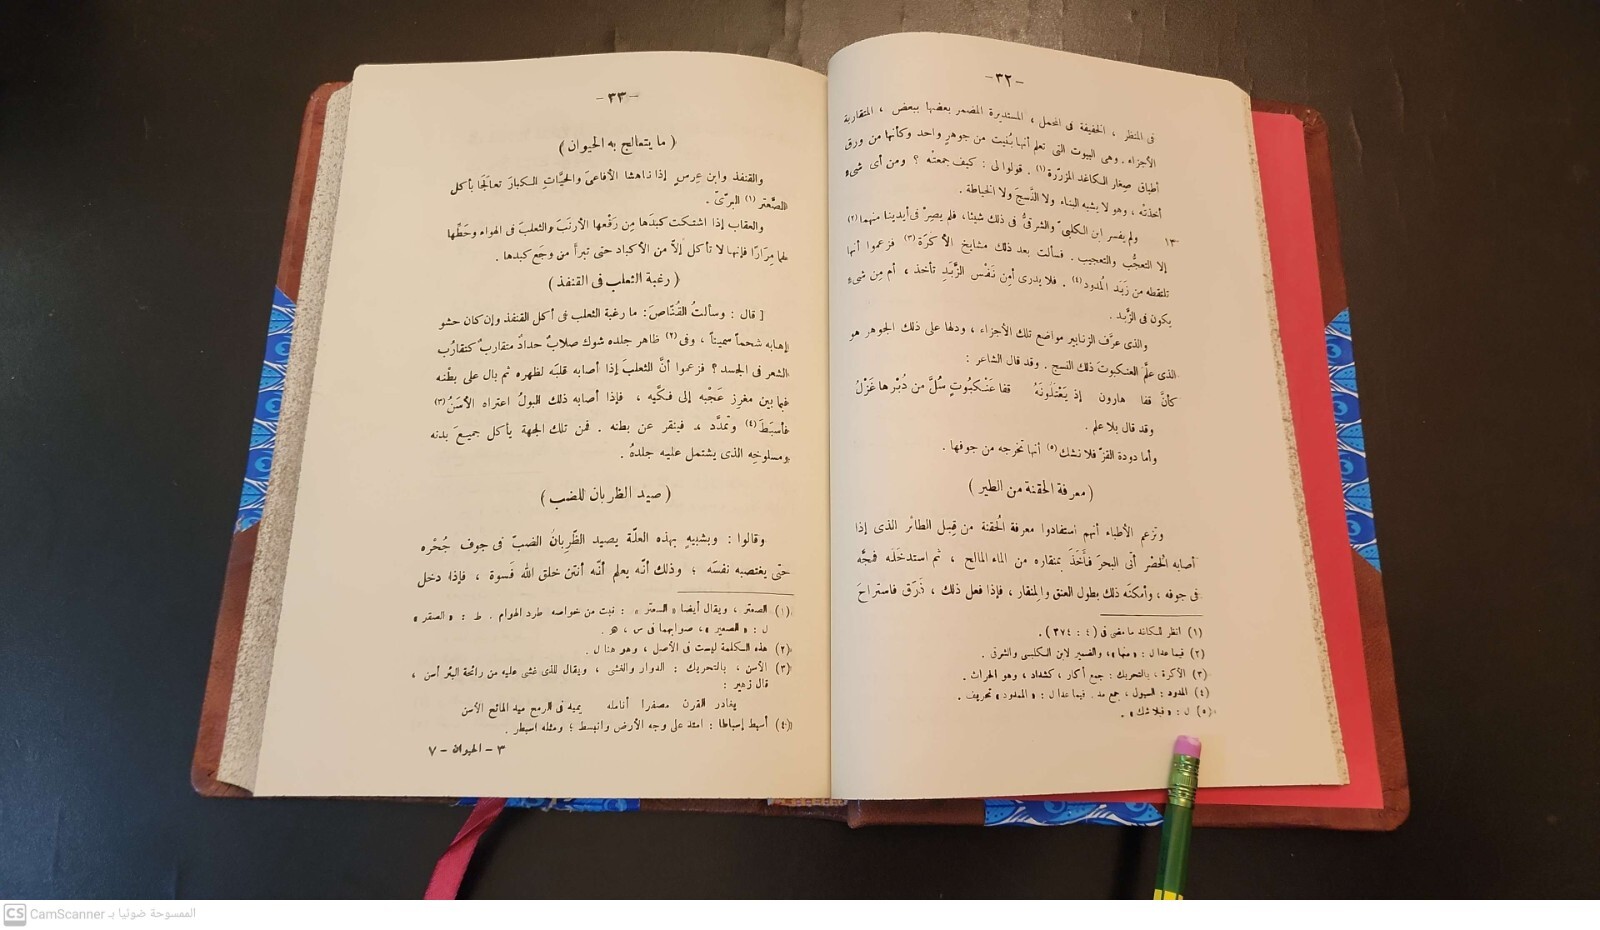 -٣٢-
فى المنظر ، الخفيفة فى المحمل ، المستديرة المضمر بعضها ببعض ، المتقاربة
الأجزاء . وهى البيوت التى تعلم أنها بُنيت من جوهرٍ واحد وكأنها من ورق
أطباق صِغار الكاغد المزرّرة (١) . قولوا لى : كيف جمعتْه ؟ ومن أى شىءٍ
أخذتْه ، وهو لا يشبه البناء ولا النَّسجَ ولا الخياطة .
١٣ ولم يفسر ابن الكلبىّ والشرقىُّ فى ذلك شيئا، فلم يصِرْ فى أيدينا منهما (٢)
إلا التعجُّب والتعجيب . فسألت بعد ذلك مشايخ الأكَرَة (٣) فزعموا أنها
تلتقطه من زَبَد المُدود (٤) . فلا يدرى أمِن نَفْس الزَّبَدِ تأخذ ، أم مِن شىءٍ
يكون فى الزَّبد .
والذى عرَّف الزنابير مواضع تلك الأجزاء ، ودلها على ذلك الجوهر هو
الذى علَّم العنكبوتَ ذلك النسج . وقد قال الشاعر :
كأنَّ قفا هارون إذ يَعْتَلُونَهُ قفا عَنْكبُوتٍ سُلَّ من دُبْرها غَزْلُ
وقد قال بلا علم .
وأما دودة القزّ فلا نشك (٥) أنها تخرجه من جوفها .
( معرفة الحقنة من الطير )
وتزعم الأطباء أنهم استفادوا معرفة الحُقنة من قِبل الطائر الذى إذا
أصابه الحُصْر أتى البحرَ فأخَذَ بمنقاره من الماء المالح ، ثم استدخَلَه فمجَّه
فى جوفه ، وأمكنَه ذلك بطول العنق والمنقار ، فإذا فعل ذلك ، ذَرَق فاستراحَ
(١) انظر للكاغد ما مضى فى ( ٤ : ٣٧٤ ) .
(٢) فيما عدا ل : « منها » ، والضمير لابن الكلبى والشرقى .
(٣) الأكرة ، بالتحريك : جمع أكار ، كشداد ، وهو الحراث .
(٤) المدود : السيول ، جمع مد . فيما عدا ل : « الممدود » تحريف .
(٥) ل : « فبلا شك » .
-٣٣-
( ما يتعالج به الحيوان )
والقنفذ وابن عِرسٍ إذا ناهشا الأفاعىَ والحيَّاتِ الكبارَ تعالَجَا بأكل
الصَّعتر (١) البرّىّ .
والعقاب إذا اشتكت كبدَها مِن رَفْعها الأرنَبَ والثعلبَ فى الهواء وحَطِّها
لهما مِرَارًا فإنها لا تأكل إلاّ من الأكباد حتى تبرأَ من وجَع كبدها .
( رغبة الثعلب فى القنفذ )
[ قال : وسألتُ القُنَّاصَ: ما رغبة الثعلب فى أكل القنفذ وإن كان حشو
إهابه شحماً سميناً ، وفى (٢) ظاهر جلده شوك صلابٌ حدادٌ متقاربٌ كتقارُب
الشعر فى الجسد ؟ فزعموا أنَّ الثعلبَ إذا أصابه قلبَه لظهره ثم بال على بطْنه
فيما بين مغرِز عَجْبه إلى فكَّيه ، فإذا أصابه ذلك البولُ اعتراه الأسَنُ (٣)
فأسبَطَ (٤) وتمدَّد ، فينقر عن بطنه . فمن تلك الجهة يأكل جميعَ بدنه
ومسلوخِه الذى يشتمل عليه جلدُهُ .
( صيد الظربان للضب )
وقالوا : وبشبيهٍ بهذه العلّة يصيد الظَّرِبانُ الضبّ فى جوف جُحْره
حتى يغتصبه نفسَه ؛ وذلك أنّه يعلم أنّه أنتن خلق الله فَسوة ، فإذا دخل
(١) الصعتر ، ويقال أيضا « السعتر » : نبت من خواصه طرد الهوام . ط : « الصقر »
ل : « الصعير » ، صوابهما فى س ، ﻫ .
(٢) هذه الكلمة ليست فى الأصل ، وهو هنا ل .
(٣) الأسن ، بالتحريك : الدوار والغشى ، ويقال للذى غشى عليه من رائحة البئر أسن ،
قال زهير :
يغادر القرن مصفرا أنامله يميد فى الرمح ميد المائح الأسن
(٤) أسبط إسباطا : امتد على وجه الأرض وانبسط ؛ ومثله اسبطر .
٣ - الحيوان - ٧
CS CamScanner الممسوحة ضوئيا بـ